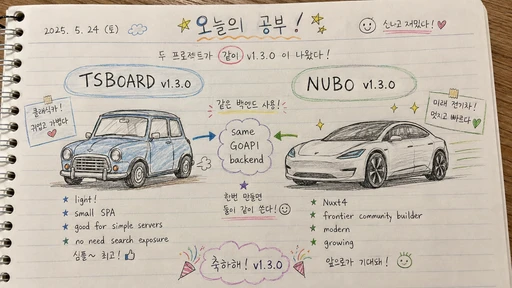 2025. 5. 24 (토)
오늘의 공부!
신나고 재밌다!
두 프로젝트가 같이 v1.3.0 이 나왔다!
TSBOARD v1.3.0
NUBO v1.3.0
클래식카!
귀엽고 가볍다
같은 백엔드 사용!
same
GOAPI
backend
한번 만들면
둘이 같이 쓴다!
미래 전기차!
멋지고 빠르다
light!
small SPA
good for simple servers
no need search exposure
심플~ 최고!
Nuxt4
frontier community builder
modern
growing
앞으로가 기대돼!
축하해! v1.3.0